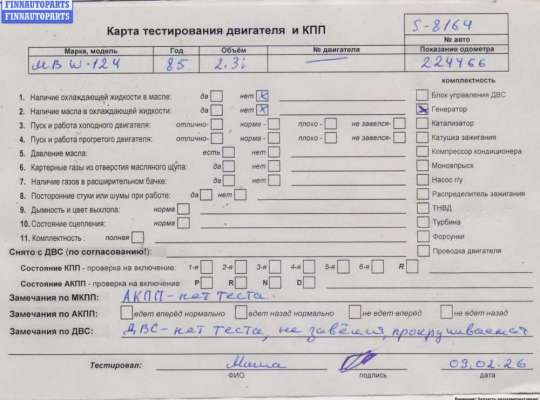 FINNAUTOPARTS
FINNAUTOPARTS
Карта тестирования двигателя и КПП
S-8164
№ авто
Марка, модель Год Объём № двигателя Показание одометра
MB W-124 85 2.3i 224466
комплектность
1. Наличие охлаждающей жидкости в масле: да нет x
Блок управления ДВС
2. Наличие масла в охлаждающей жидкости: да нет x
Генератор
3. Пуск и работа холодного двигателя: отлично- норма - плохо - не завелся-
Катализатор
4. Пуск и работа прогретого двигателя: отлично- норма - плохо - не завелся-
Катушка зажигания
5. Давление масла: есть нет
Компрессор кондиционера
6. Картерные газы из отверстия масляного щупа: да нет
Моновпрыск
7. Наличие газов в расширительном бачке: да нет
Насос г/у
8. Посторонние стуки или шумы при работе: да нет
Распределитель зажигания
9. Дымность и цвет выхлопа: норма
ТНВД
10. Состояние сцепления: норма
Турбина
11. Комплектность : полная
Форсунки
Снято с ДВС (по согласованию!):
Проводка двигателя
Состояние КПП - проверка на включение: 1-я 2-я 3-я 4-я 5-я 6-я R
Состояние АКПП - проверка на включение: P R N D
Замечания по МКПП: АКПП-нет теста.
Замечания по АКПП: едет вперёд нормально едет назад нормально не едет вперёд не едет назад
Замечания по ДВС: ДВС-нет теста, не завёлся, прокручивается
Тестировал: Миша 09.02.26
ФИО подпись дата